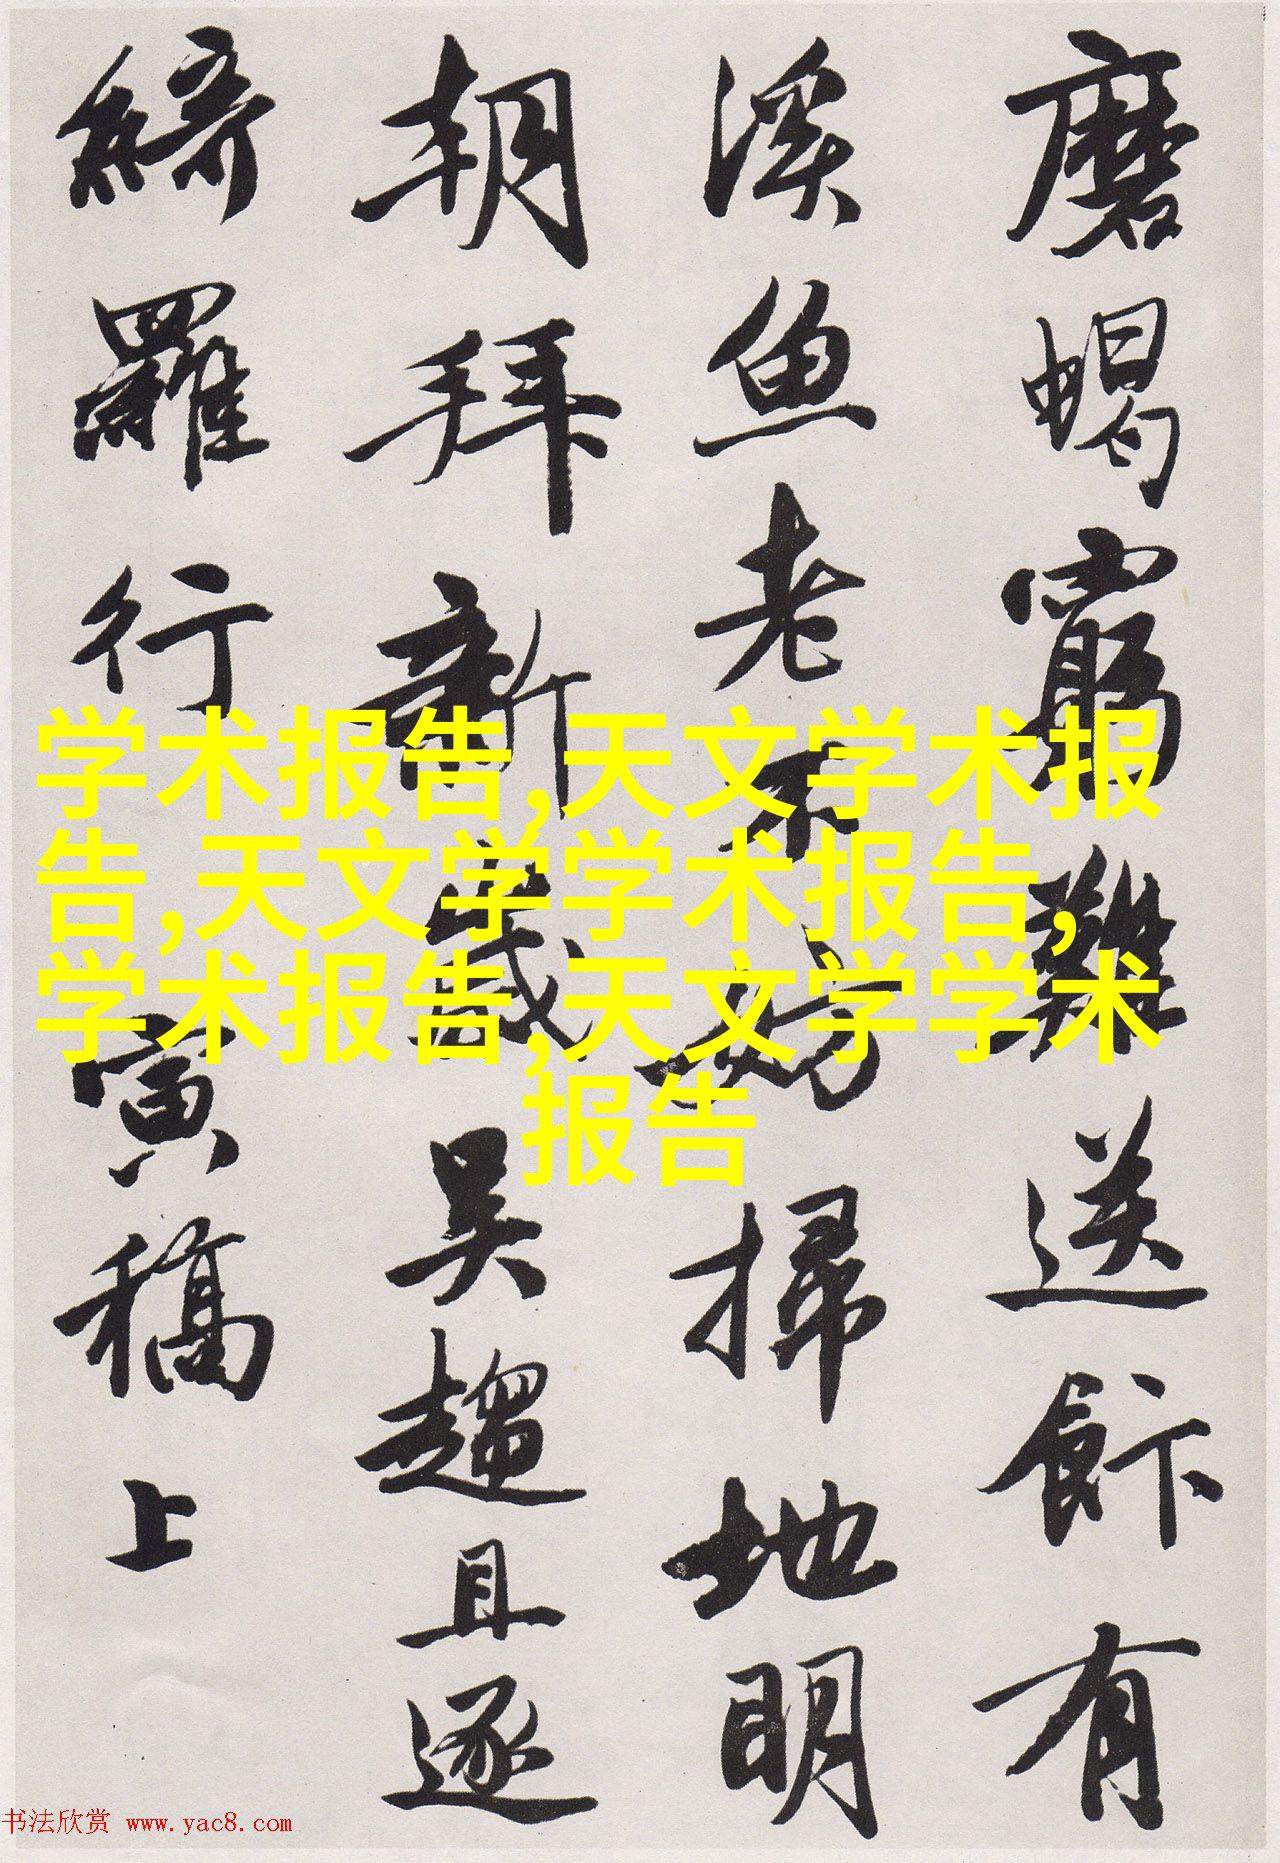 磨蝎窮難送餅有
溪魚老不妨掃地明
朝拜新歲吳趨且逐
綺羅行 寅稿上
学术报告,天文学术报
告,天文学学术报告,
学术报告,天文学学术
报告
书法欣赏 www.yac8.com